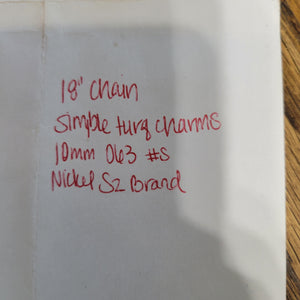 18" Chain
Simple turq charms
10mm 063 #s
Nickel Sz Brand